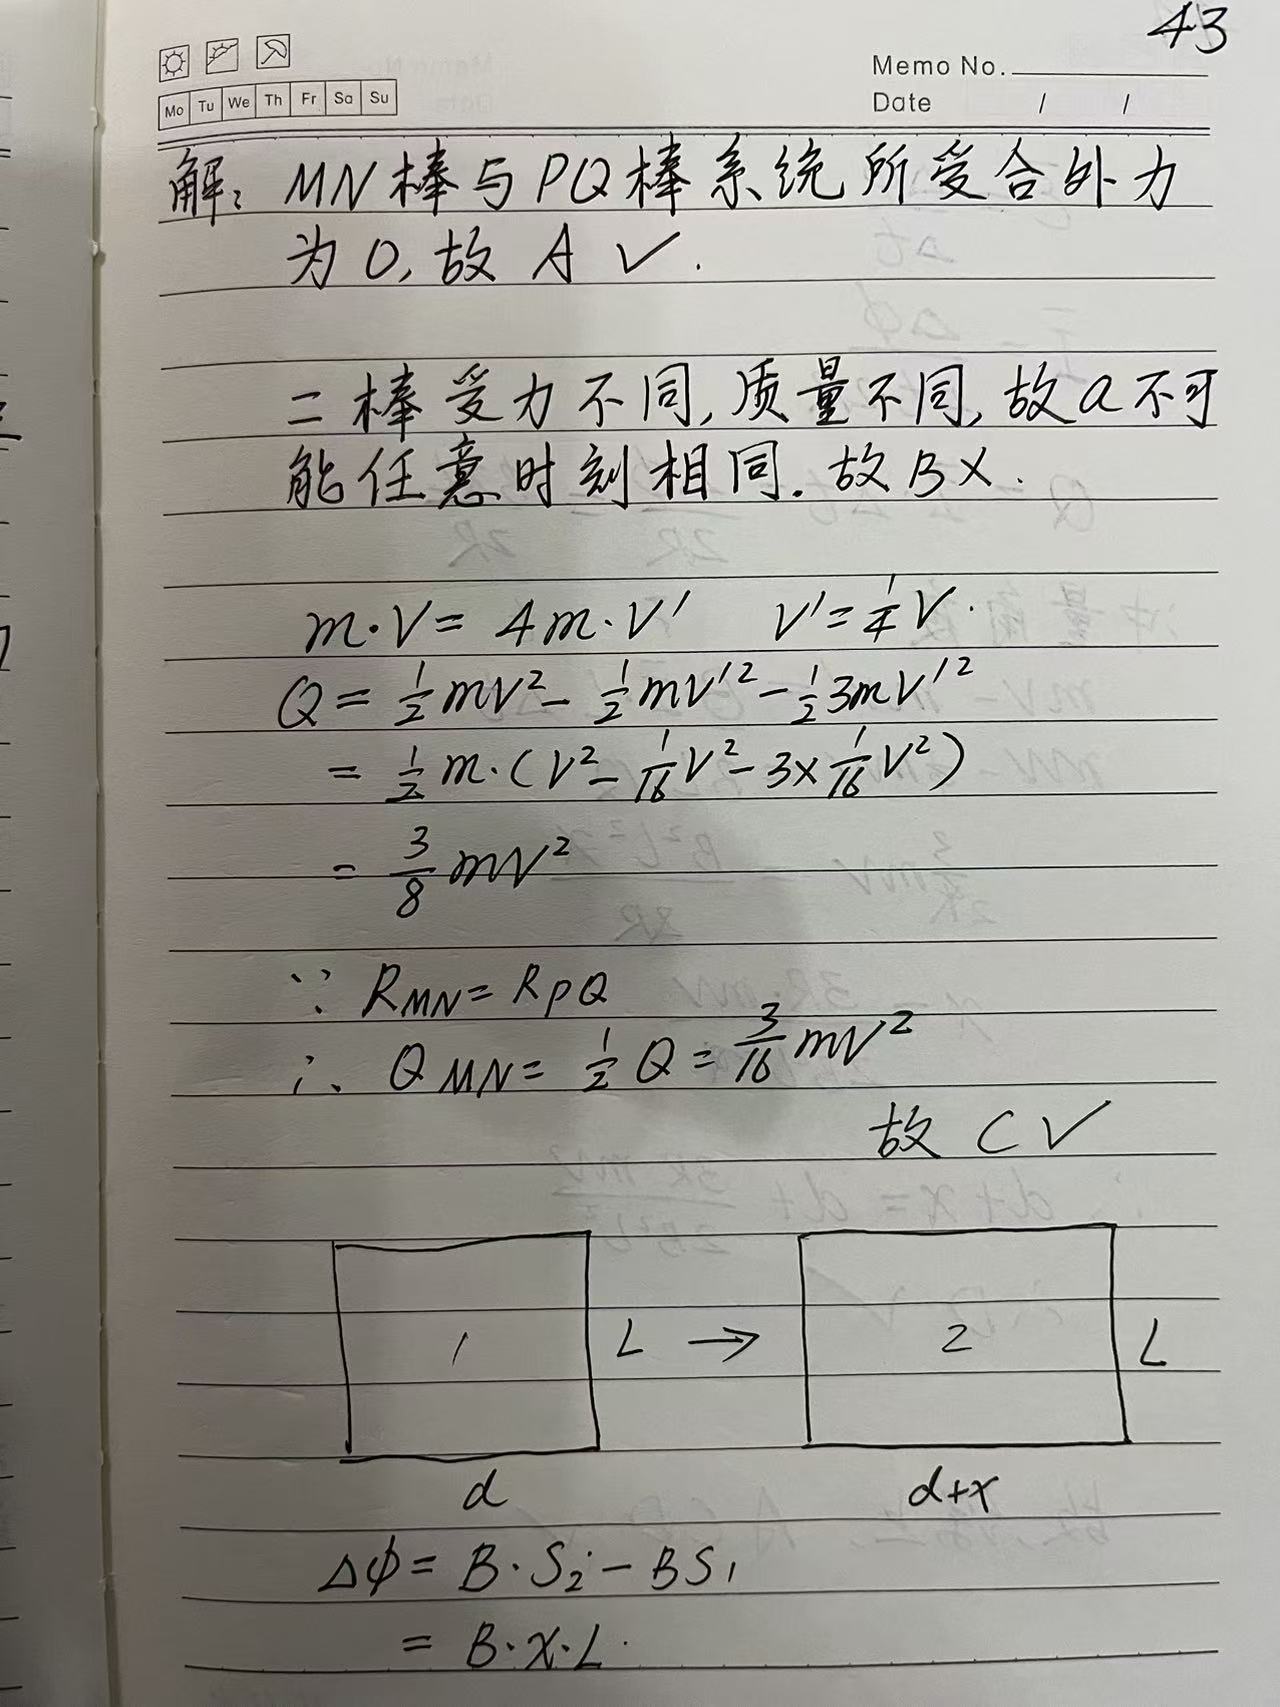 43
Memo No.
Mo Tu We Th Fr Sa Su
Date / /
解: MN棒与PQ棒系统所受合外力
为0,故 A ✓.
二棒受力不同,质量不同,故a不可
能任意时刻相同.故B×.
m·V= 4m·V' V'=1/4 V.
Q= 1/2 mV²- 1/2 mV'²- 1/2 3mV'²
= 1/2 m·(V²- 1/16 V²- 3× 1/16 V²)
= 3/8 mV²
∵ RMN= RPQ
∴ QMN= 1/2 Q= 3/16 mV²
故 C ✓
1 L → 2 L
d d+x
Δϕ= B·S₂-BS₁
= B·x·L.